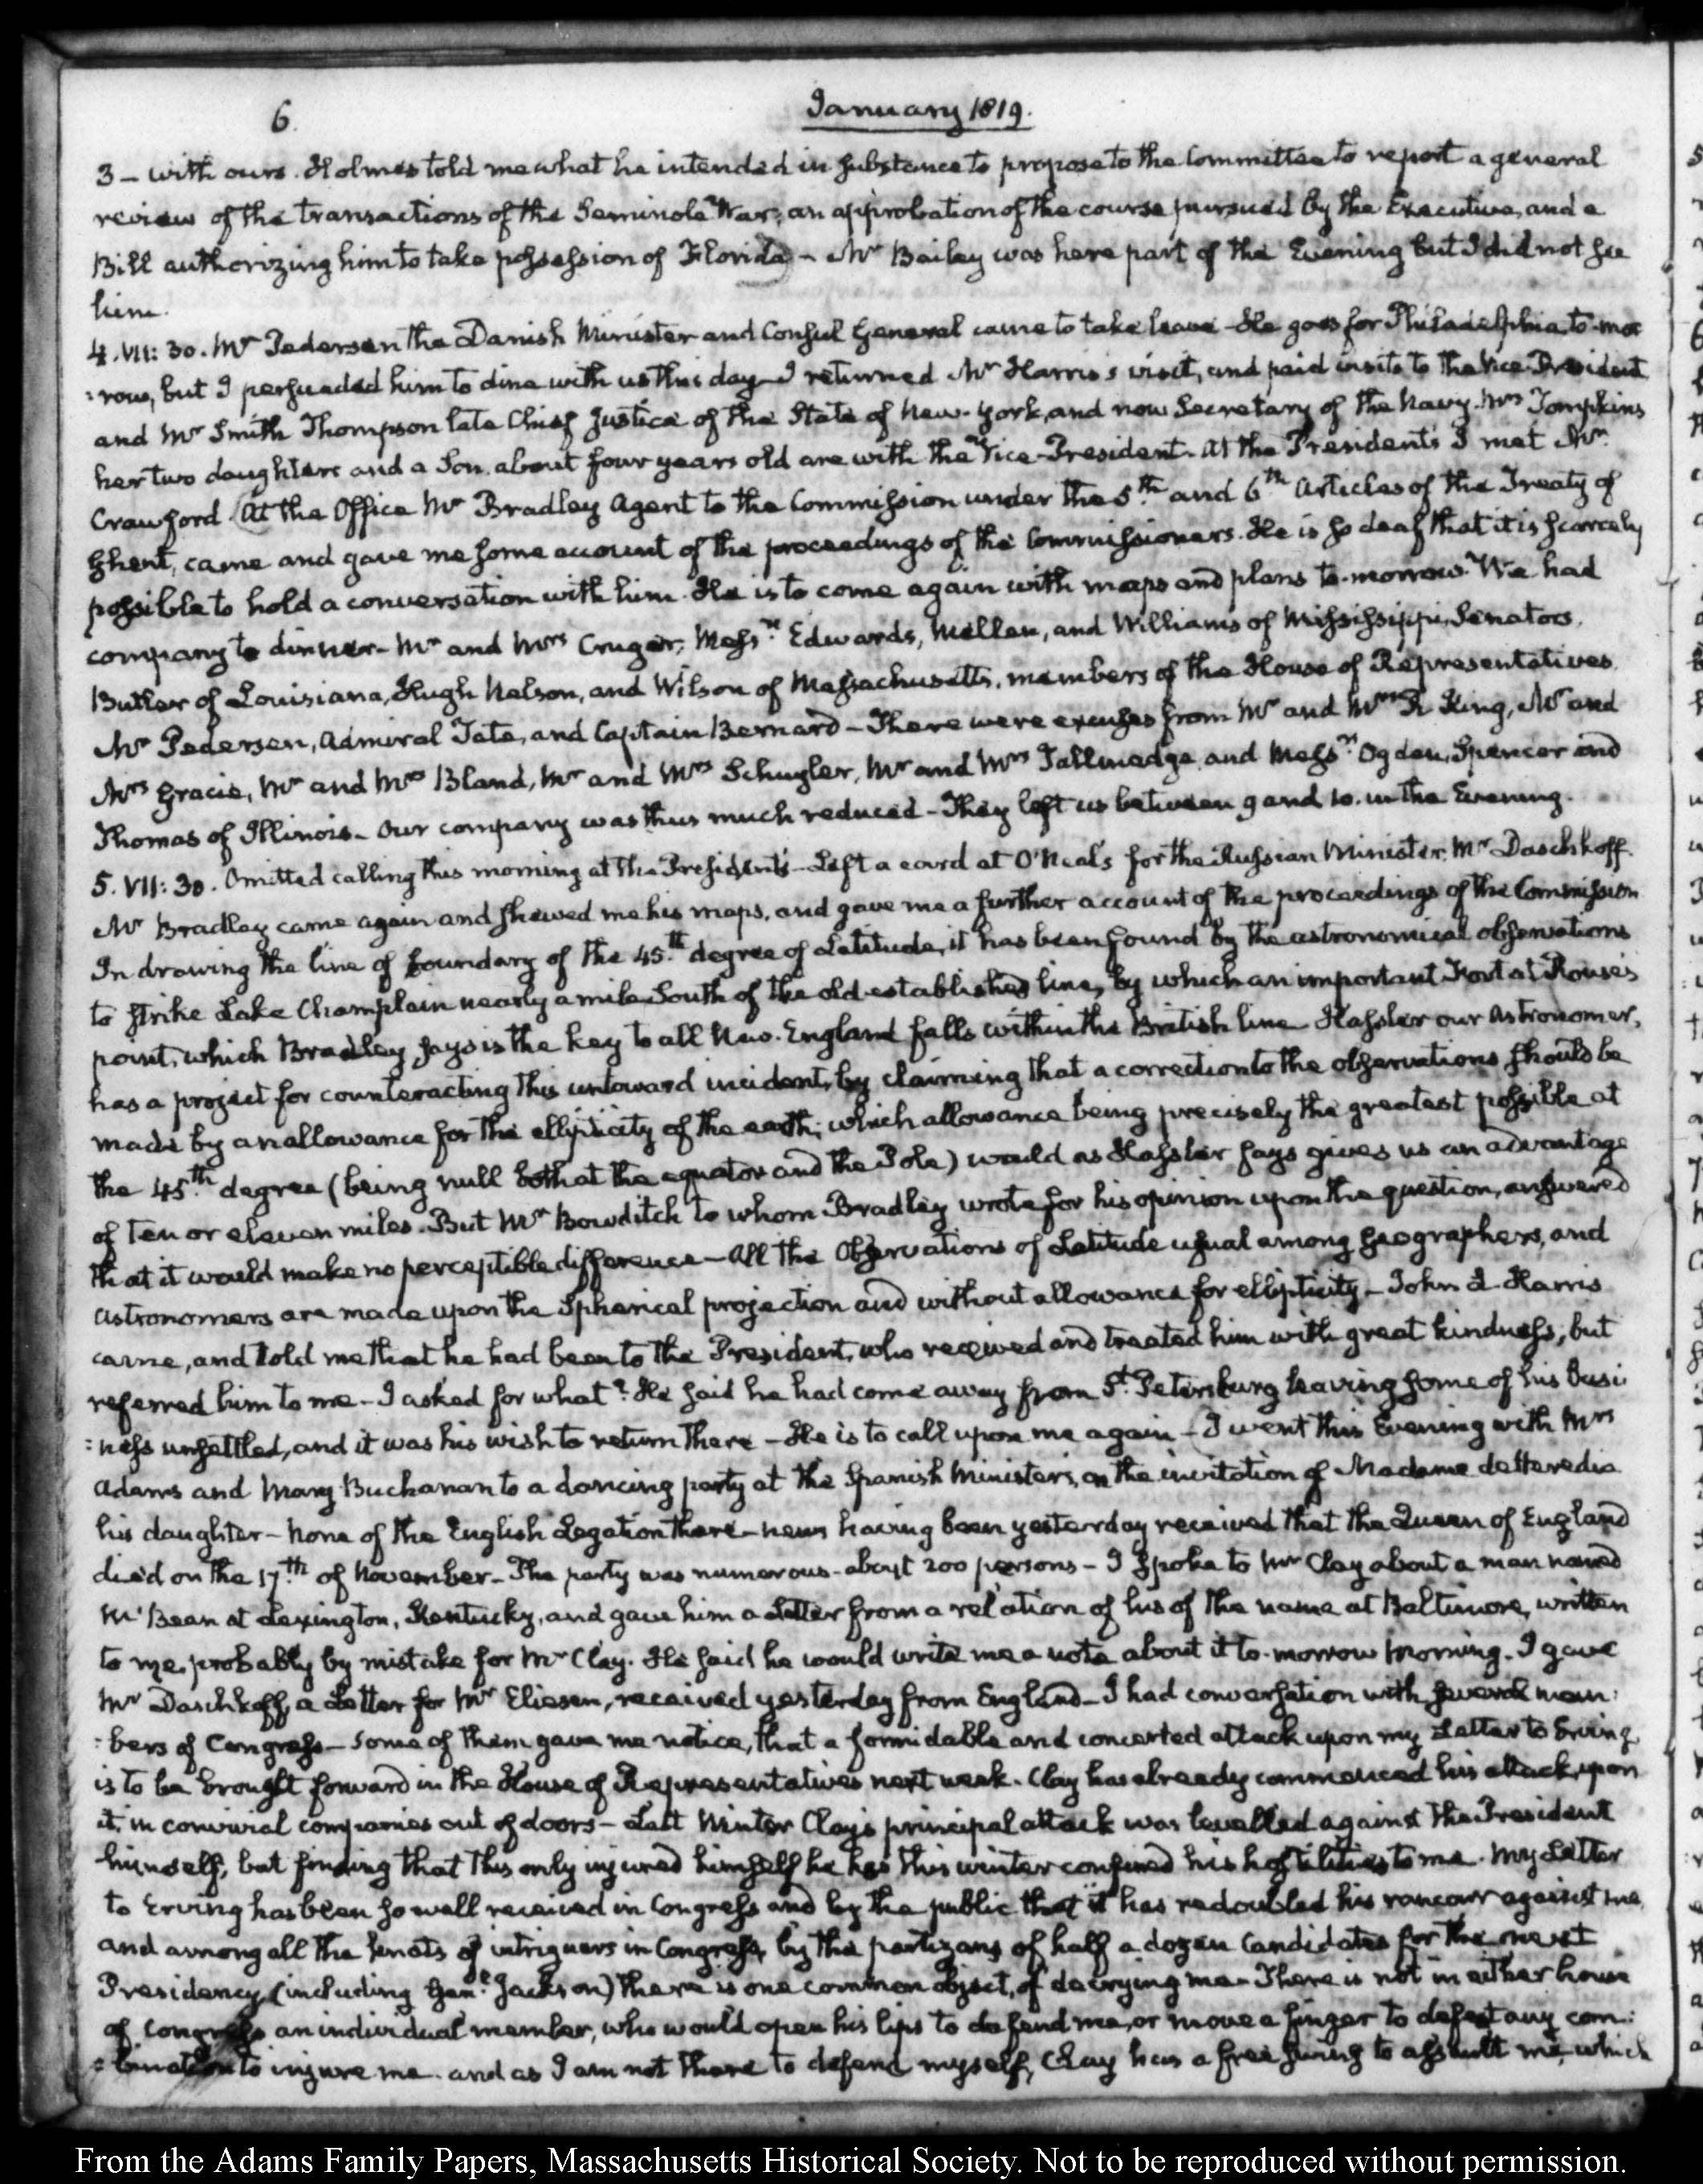 6.
January 1819.
3 – with ours. Holmes told me what he intended in substance to propose to the Committee to report a general
review of the transactions of the Seminole War, an approbation of the course pursued by the Executive, and a
Bill authorizing him to take possession of Florida – Mr Bailey was here part of the Evening but I did not see
him.
4. VII: 30. Mr Pedersen the Danish Minister and Consul General came to take leave – He goes for Philadelphia to-mor
:row, but I persuaded him to dine with us this day – I returned Mr Harris's visit, and paid visits to the Vice-President
and Mr Smith Thompson late Chief Justice of the State of New-York, and now Secretary of the Navy. Mrs Tompkins
her two daughters and a Son about four years old are with the Vice-President. At the President's I met Mr
Crawford (At the Office Mr Bradley Agent to the Commission under the 5.th and 6th Articles of the Treaty of
Ghent, came and gave me some account of the proceedings of the Commissioners. He is so deaf that it is scarcely
possible to hold a conversation with him. He is to come again with maps and plans to-morrow. We had
company to dinner – Mr and Mrs Cruger, Messrs Edwards, Mellen, and Williams of Mississippi, Senators,
Butler of Louisiana, Hugh Nelson, and Wilson of Massachusetts, members of the House of Representatives
Mr Pedersen, Admiral Tate, and Captain Bernard – There were excuses from Mr and Mrs R King, Mr and
Mrs Gracie, Mr and Mrs Bland, Mr and Mrs Schuyler, Mr and Mrs Tallmadge, and Messrs Ogden, Spencer and
Thomas of Illinois – Our company was thus much reduced – They left us between 9 and 10. in the Evening.
5. VII: 30. Omitted calling this morning at the President's – Left a card at O'Neal's for the Russian Minister, Mr Daschkoff.
Mr Bradley came again and shewed me his maps, and gave me a further account of the proceedings of the Commission
In drawing the line of boundary of the 45.th degree of Latitude, it has been found by the astronomical observations
to strike Lake Champlain nearly a mile South of the old established line, by which an important Fort at Rouse's
point, which Bradley says is the key to all New-England falls within the British line Hassler our Astronomer,
has a project for counteracting this untoward incident, by claiming that a correction to the observations should be
made by an allowance for the ellipticity of the earth; which allowance being precisely the greatest possible at
the 45.th degree (being null both at the equator and the Pole) would as Hassler says gives us an advantage
of ten or eleven miles. But Mr Bowditch to whom Bradley wrote for his opinion upon the question, answered
that it would make no perceptible difference – All the Observations of Latitude usual among Geographers, and
astronomers are made upon the Spherical projection and without allowance for ellipticity – John L Harris
came, and told me that he had been to the President, who received and treated him with great kindness; but
referred him to me – I asked for what? He said he had come away from St. Petersburg leaving some of his busi
:ness unsettled, and it was his wish to return there – He is to call upon me again – (I went this Evening with Mrs
Adams and Mary Buchanan to a dancing party at the Spanish Minister's, on the invitation of Madame de Heredia
his daughter – None of the English Legation there – news having been yesterday received that the Queen of England
died on the 17.th of November – The party was numerous – about 200 persons – I spoke to Mr Clay about a man named
Mc Bean at Lexington, Kentucky, and gave him a Letter from a relation of his of the name at Baltimore, written
to me probably by mistake for Mr Clay. He said he would write me a note about it to-morrow morning. I gave
Mr Daschkoff, a Letter for Mr Eliesen, received yesterday from England – I had conversation with several mem:
:bers of Congress – Some of them gave me notice, that a formidable and concerted attack upon my Letter to Erving
is to be brought forward in the House of Representatives next week. Clay has already commenced his attack upon
it, in convivial companies out of doors – Last Winter Clay's principal attack was levelled against the President
himself, but finding that this only injured himself he has this winter confined his hostilities to me. My Letter
to Erving has been so well received in Congress and by the public that it has redoubled his rancour against me,
and among all the knots of intriguers in Congress, by the partizans of half a dozen Candidates for the next
Presidency (including Genl. Jackson) there is one common object, of decrying me – There is not in either house
of Congress an individual member, who would open his lips to defend me, or move a finger to defeat any com:
:bination to injure me. and as I am not there to defend myself, Clay has a free swing to assault me, which
From the Adams Family Papers, Massachusetts Historical Society. Not to be reproduced without permission.